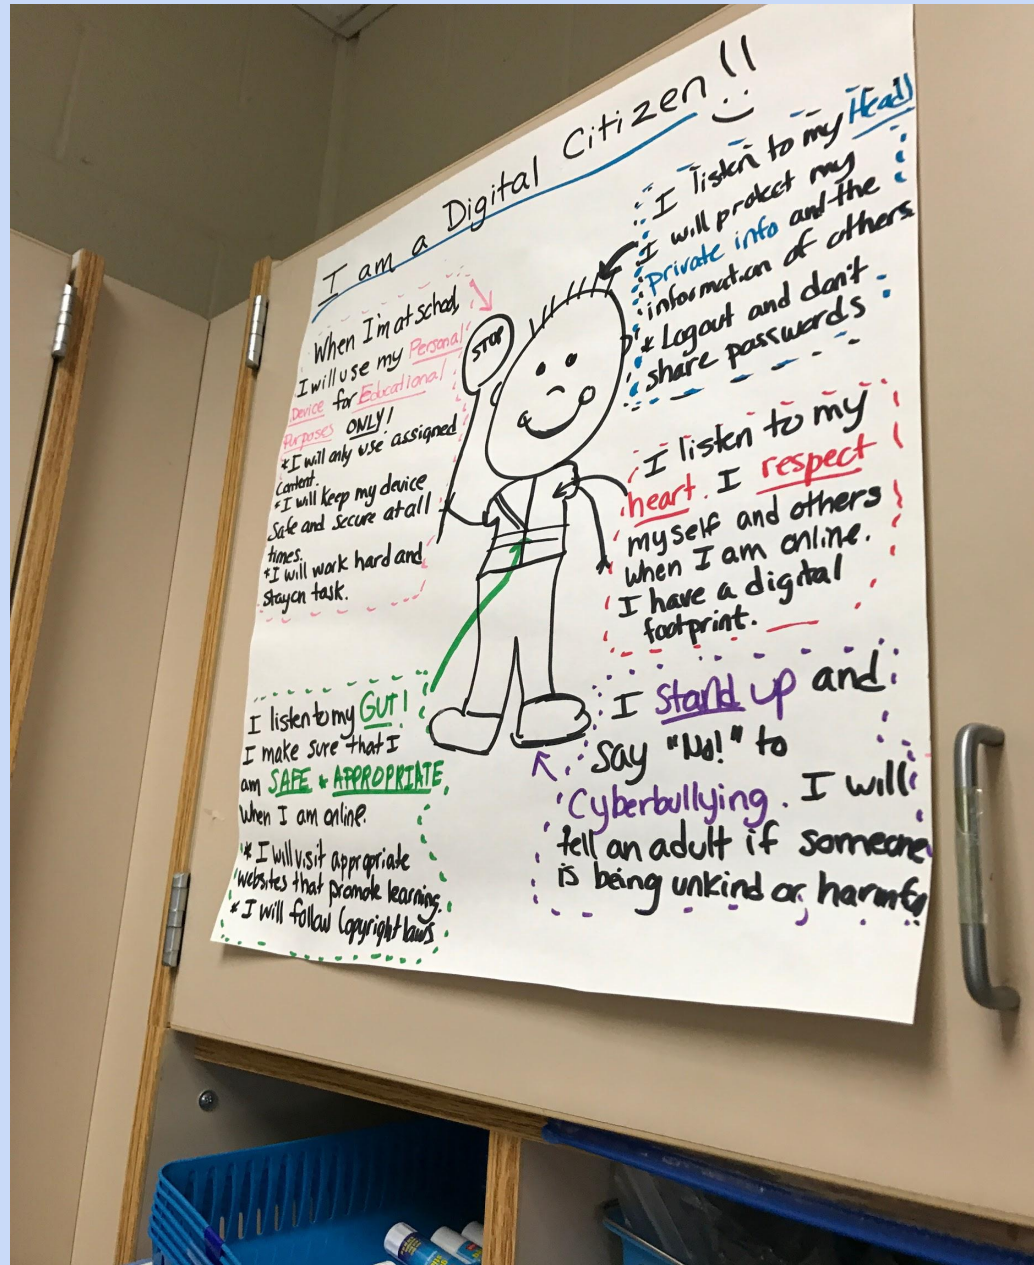 I am a Digital Citizen!!
When I'm at school,
I will use my Personal
Device for Educational
Purposes ONLY!
*I will only use assigned
Content.
*I will keep my device
Safe and secure at all
times.
*I will work hard and
stay on task.
STOP
I listen to my Head!
I will protect my
private info and the
information of others
* Logout and don't
share passwords
I listen to my
heart. I respect
myself and others
when I am online.
I have a digital
footprint.
I listen to my GUT!
I make sure that I
am SAFE & APPROPRIATE
when I am online.
* I will visit appropriate
websites that promote learning.
* I will follow Copyright laws
I stand up and
say "No!" to
Cyberbullying. I will
tell an adult if someone
is being unkind or